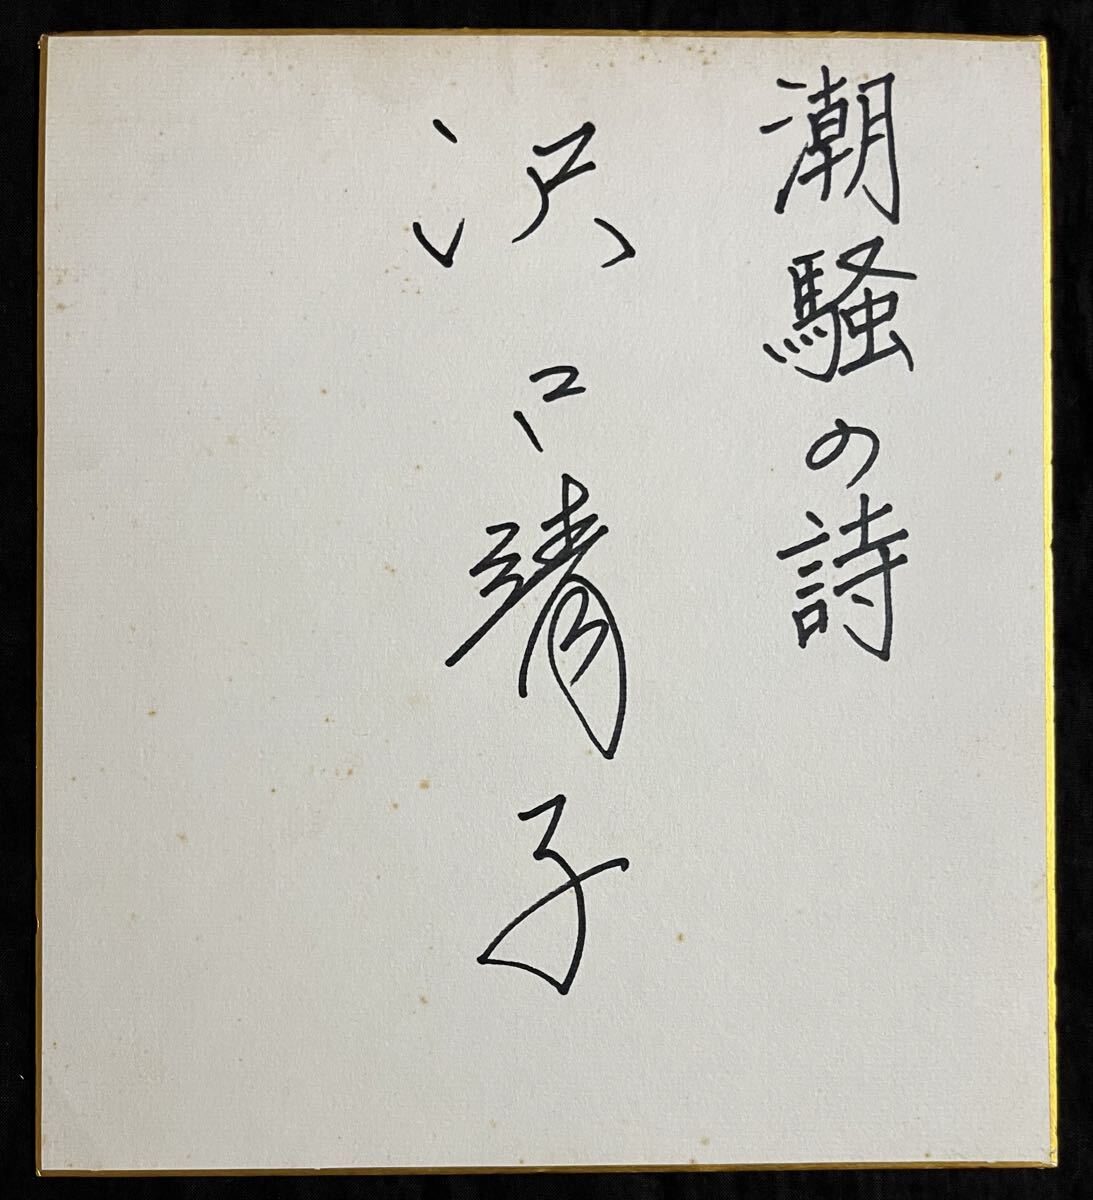 潮騒の詩
沢口靖子